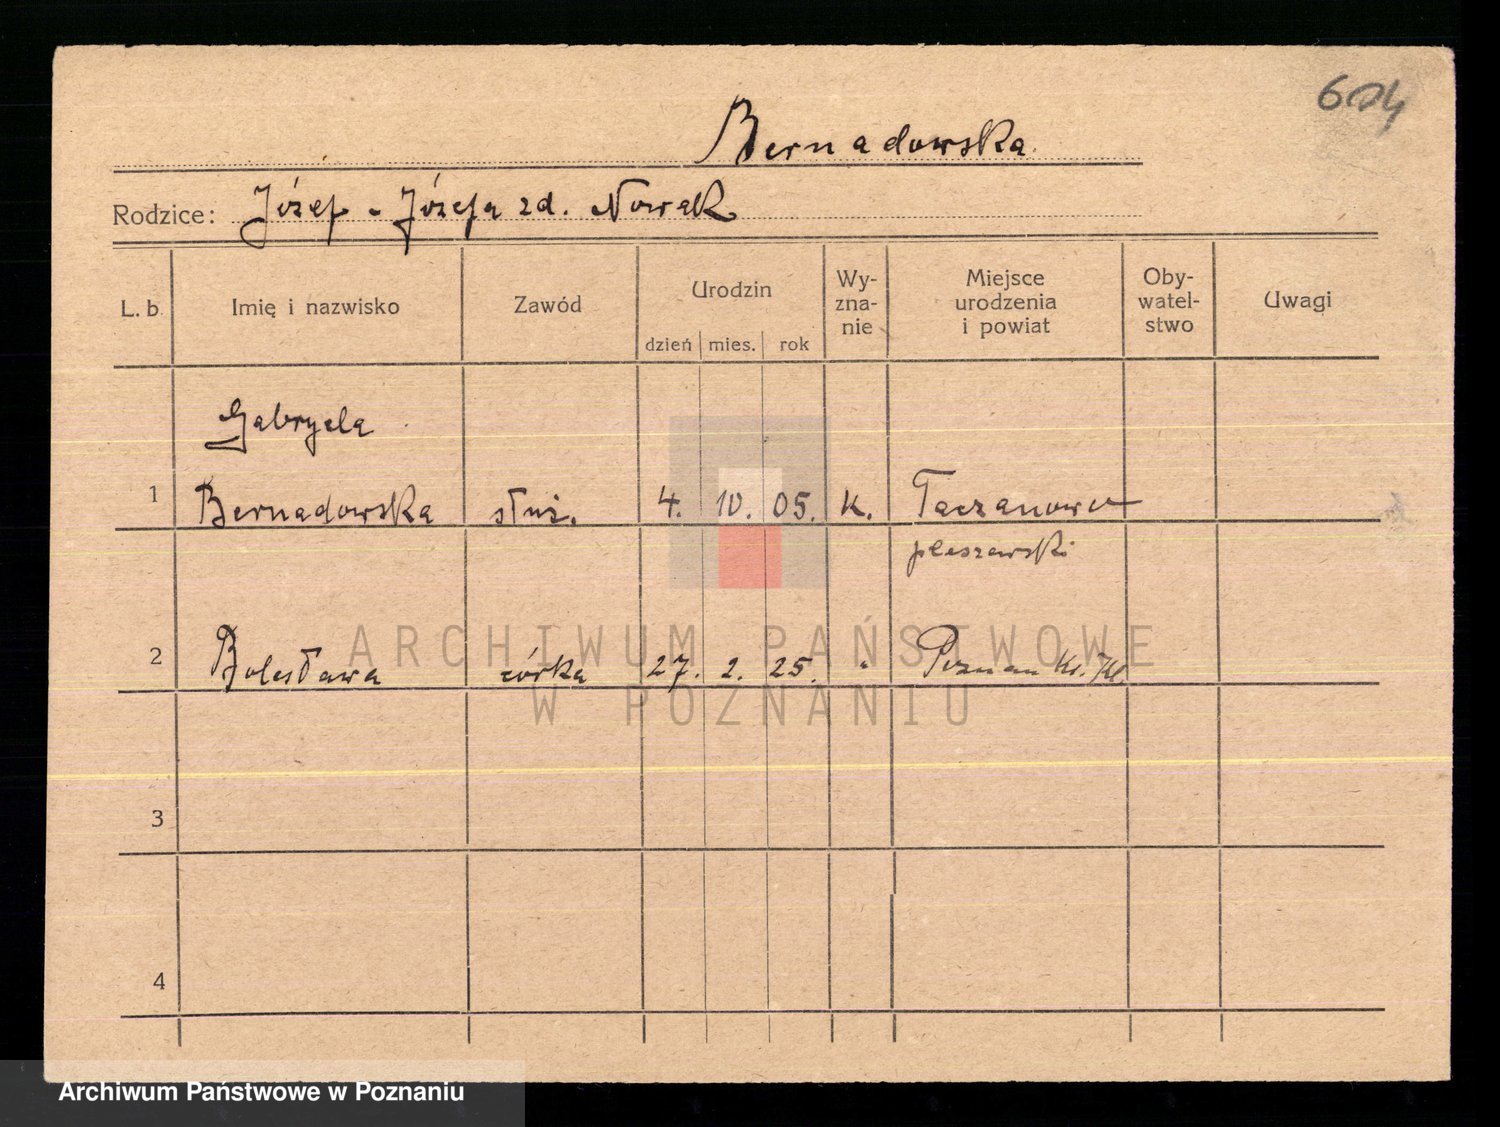 Bernadowska
Rodzice: Józef - Józefa zd. Nowak
L. b. Imię i nazwisko Zawód Urodzin dzień mies. rok Wy-zna-nie Miejsce urodzenia i powiat Oby-watel-stwo Uwagi
Gabryela
1 Bernadowska służ. 4. 10. 05. k. Taczanowo
pleszewski
2 Bolesława córka 27. 2. 25. " Poznań
3
4
ARCHIWUM PAŃSTWOWE
W POZNANIU
Archiwum Państwowe w Poznaniu